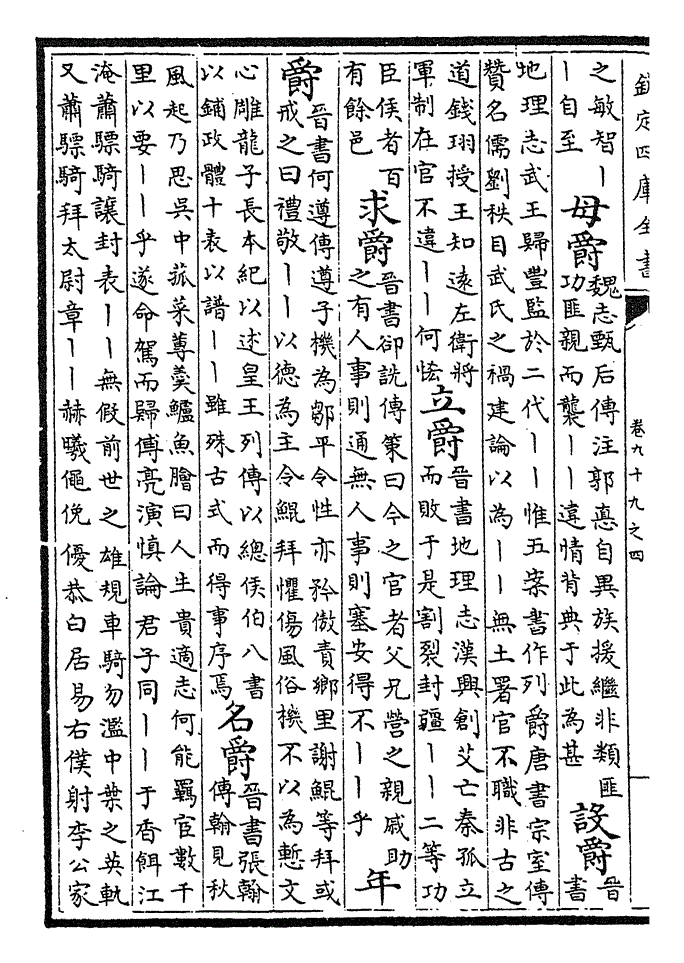 欽定四庫全書
卷九十九之四
之敏智丨
丨自至
母爵
魏志甄后傳注郭悳自異族援繼非類匪
功匪親而襲丨丨違情背典于此為甚
設爵
晉
書
地理志武王歸豐監於二代丨丨惟五案書作列爵唐書宗室傳
贊名儒劉秩目武氏之禍建論以為丨丨無土署官不職非古之
道錢珝授王知遠左衛將
軍制在官不違丨丨何恡
立爵
晉書地理志漢興創艾亡秦孤立
而敗于是割裂封疆丨丨二等功
臣侯者百
有餘邑
求爵
晉書卻詵傳策曰今之官者父兄營之親戚助
之有人事則通無人事則塞安得不丨丨乎
年
爵
晉書何遵傳遵子機為鄒平令性亦矜傲責鄉里謝鯤等拜或
戒之曰禮敬丨丨以德為主令鯤拜懼傷風俗機不以為慙文
心雕龍子長本紀以述皇王列傳以總侯伯八書
以鋪政體十表以譜丨丨雖殊古式而得事序焉
名爵
晉書張翰
傳翰見秋
風起乃思吳中菰菜蓴羹鱸魚膾曰人生貴適志何能羈宦數千
里以要丨丨乎遂命駕而歸傅亮演慎論君子同丨丨于香餌江
淹蕭驃騎讓封表丨丨無假前世之雄規車騎勿濫中葉之英軌
又蕭驃騎拜太尉章丨丨赫曦僶俛優恭白居易右僕射李公家